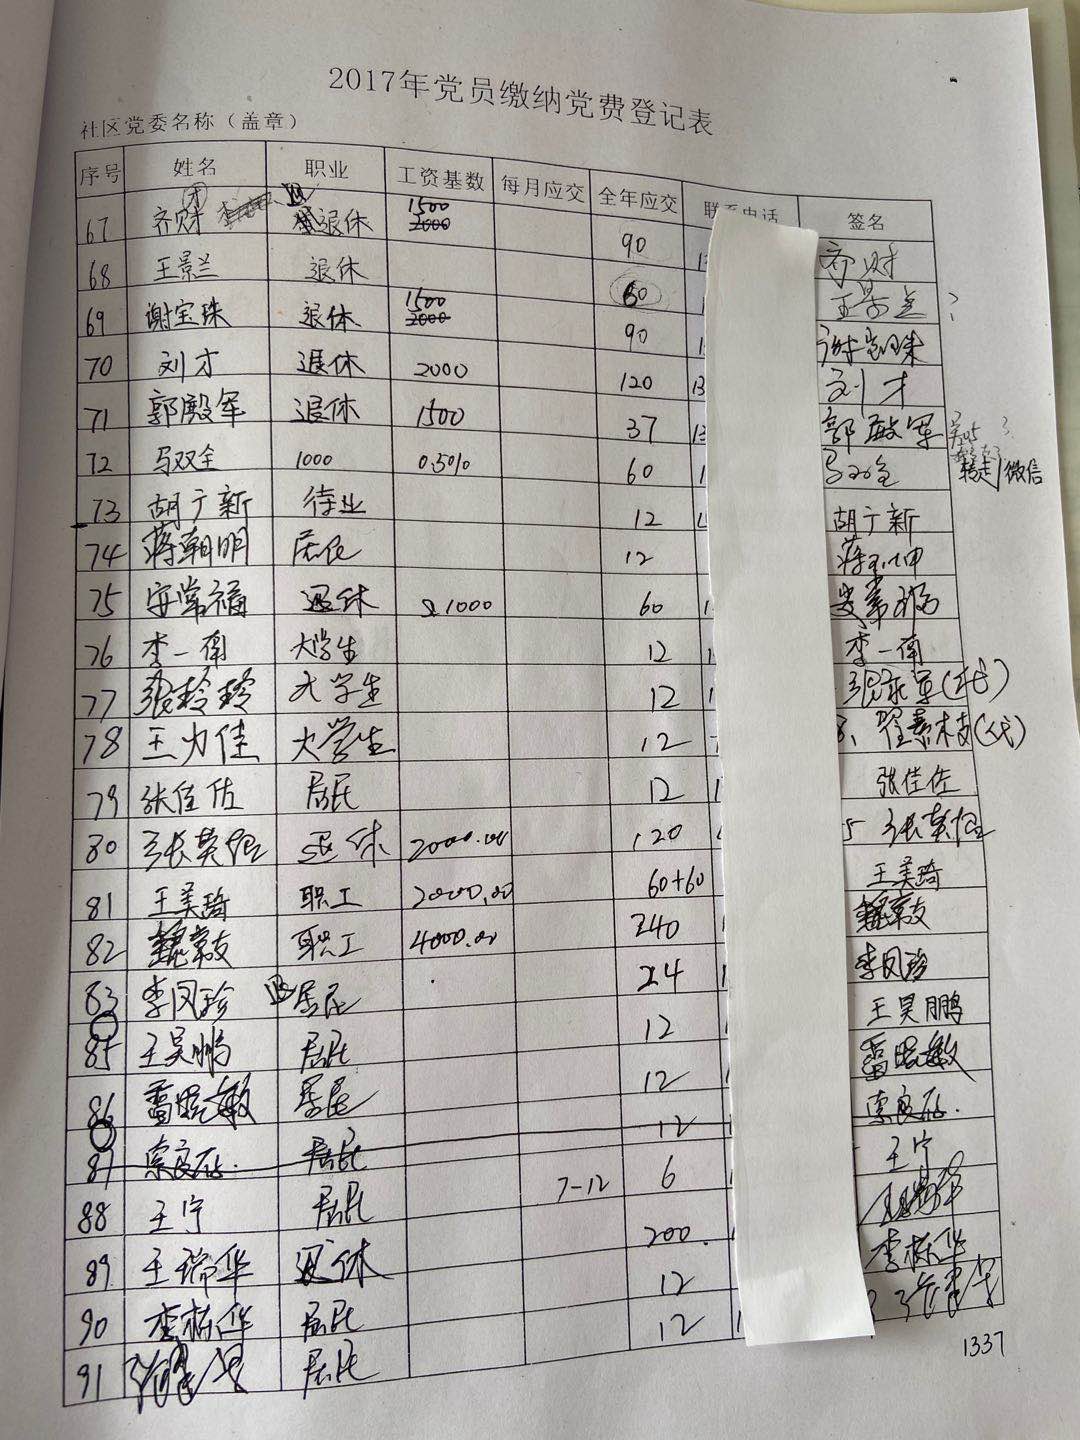 2017年党员缴纳党费登记表
社区党委名称（盖章）
序号 姓名 职业 工资基数 每月应交 全年应交 联系电话 签名
67 齐财 退休 1500 2000 90 齐财
68 王景兰 退休 60 王景兰
69 谢宝珠 退休 1500 2000 90 谢宝珠
70 刘才 退休 2000 120 刘才
71 郭殿军 退休 1500 37 郭殿军
72 马双全 1000 0.5% 60 马双全 转走 微信
73 胡广新 待业 12 胡广新
74 蒋朝明 居民 12
75 安常福 退休 1000 60 安常福
76 李一南 大学生 12 李一南
77 张玲玲 大学生 12 张永军(代)
78 王力佳 大学生 12 翟素枝(代)
79 张佳佐 居民 12 张佳佐
80 张英恒 退休 2000.00 120 张英恒
81 王美琦 职工 2000.00 60+60 王美琦
82 职工 4000.00 240
83 李凤珍 居民 24 李凤珍
85 王昊鹏 居民 12 王昊鹏
86 雷晓敏 居民 12 雷晓敏
87 居民 12
88 王宁 居民 7-12 6 王宁
89 王瑞华 退休 200
90 李栋华 居民 12 李栋华
91 居民 12
1337